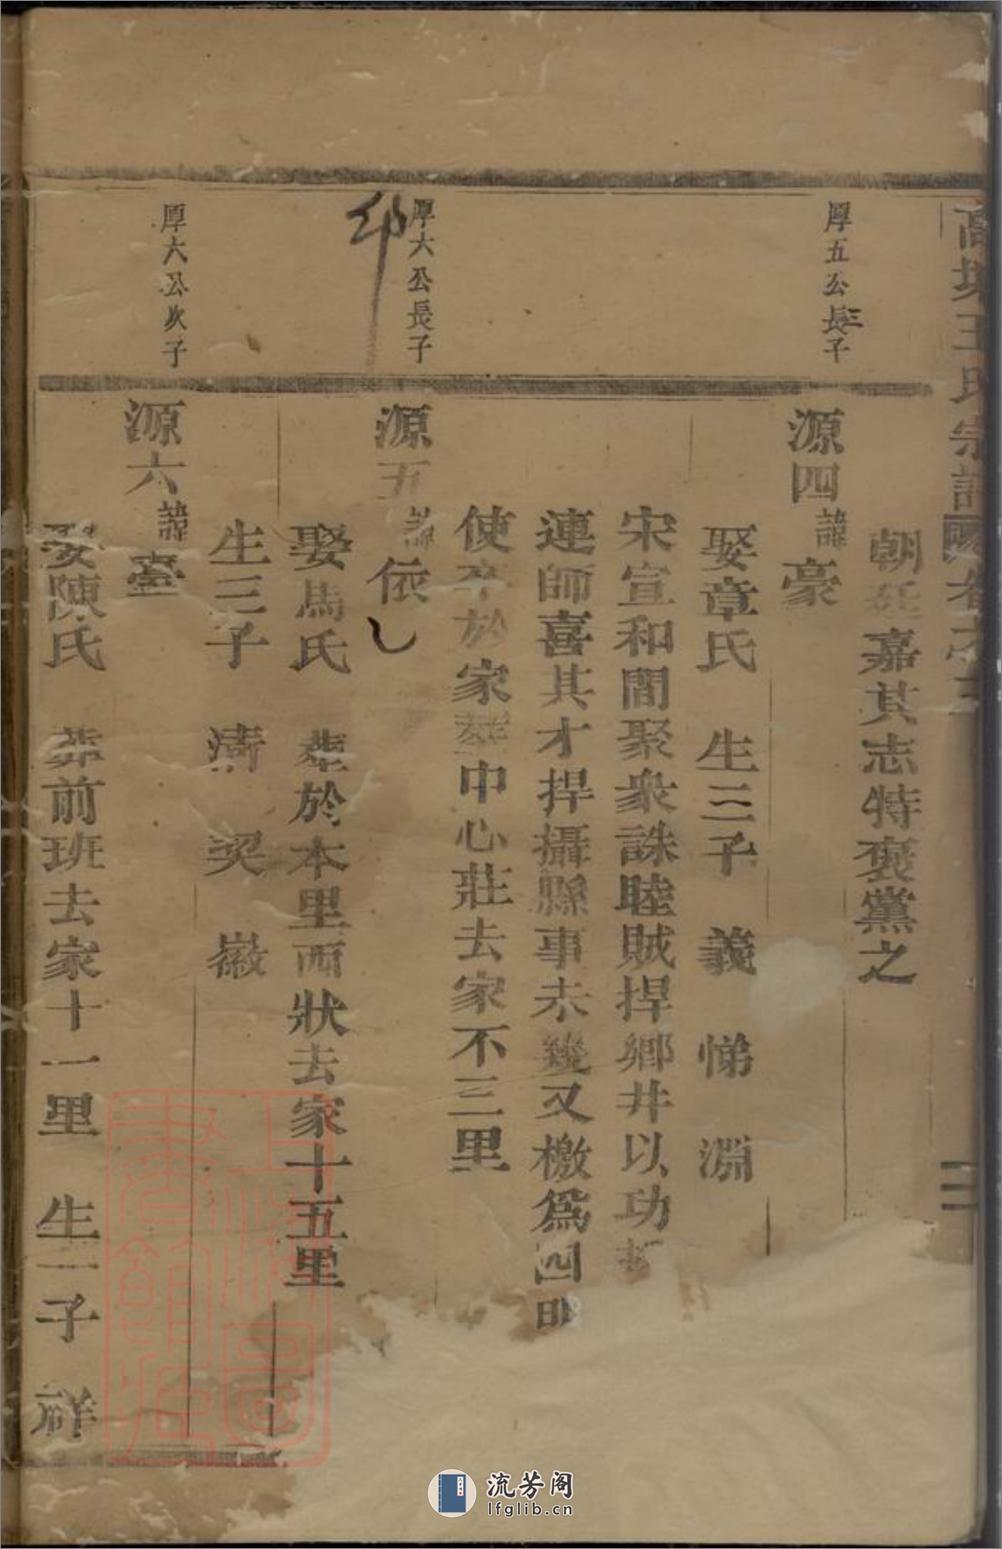 王氏宗譜
二
朝廷嘉其志特褒黨之
厚五公三長子
源四諱豪
娶章氏 生三子 義 悌 淵
宋宣和間聚衆誅睦賊捍鄉井以功
連師喜其才捍攝縣事未幾又檄為四明
使卒於家葬中心莊去家不三里
厚六公長子
源五諱依
娶馬氏 葬於本里西狀去家十五里
生三子 濤 奕 徽
厚六公次子
源六諱臺
娶陳氏 葬前班去家十一里 生一子 祥
流芳阁
lfglib.cn